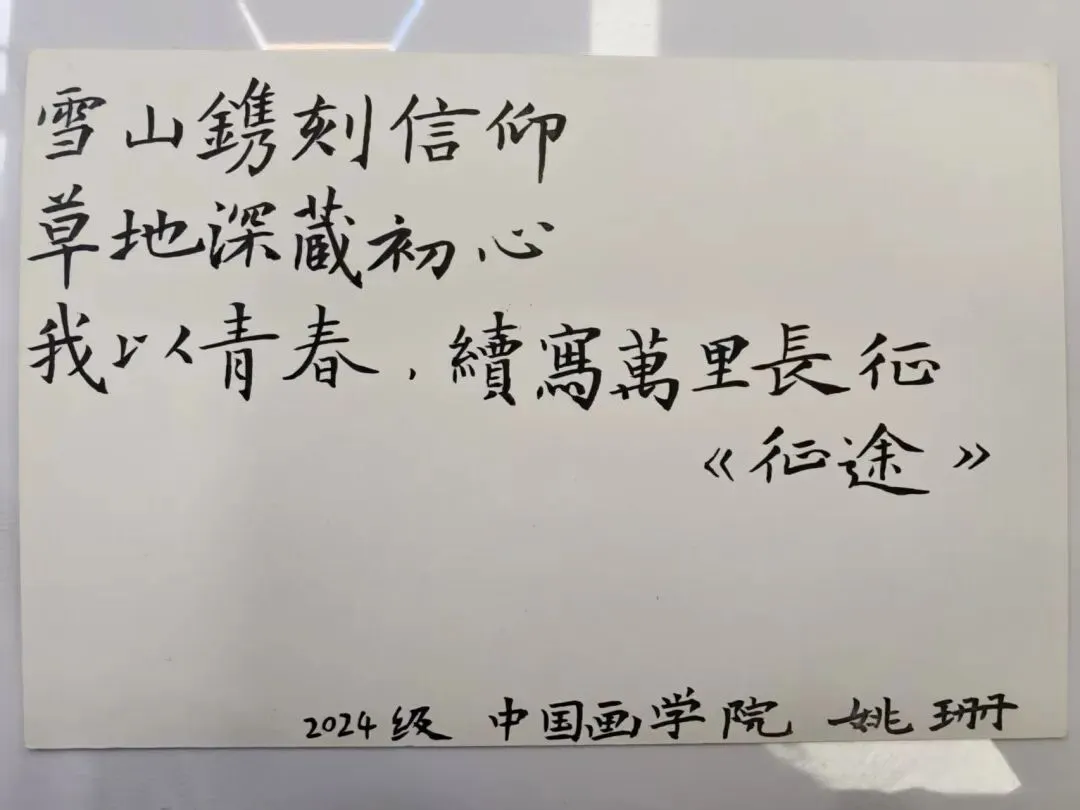 雪山鐫刻信仰
草地深蔵初心
我以青春，續寫萬里長征
《征途》
2024级 中国画学院 姚珊